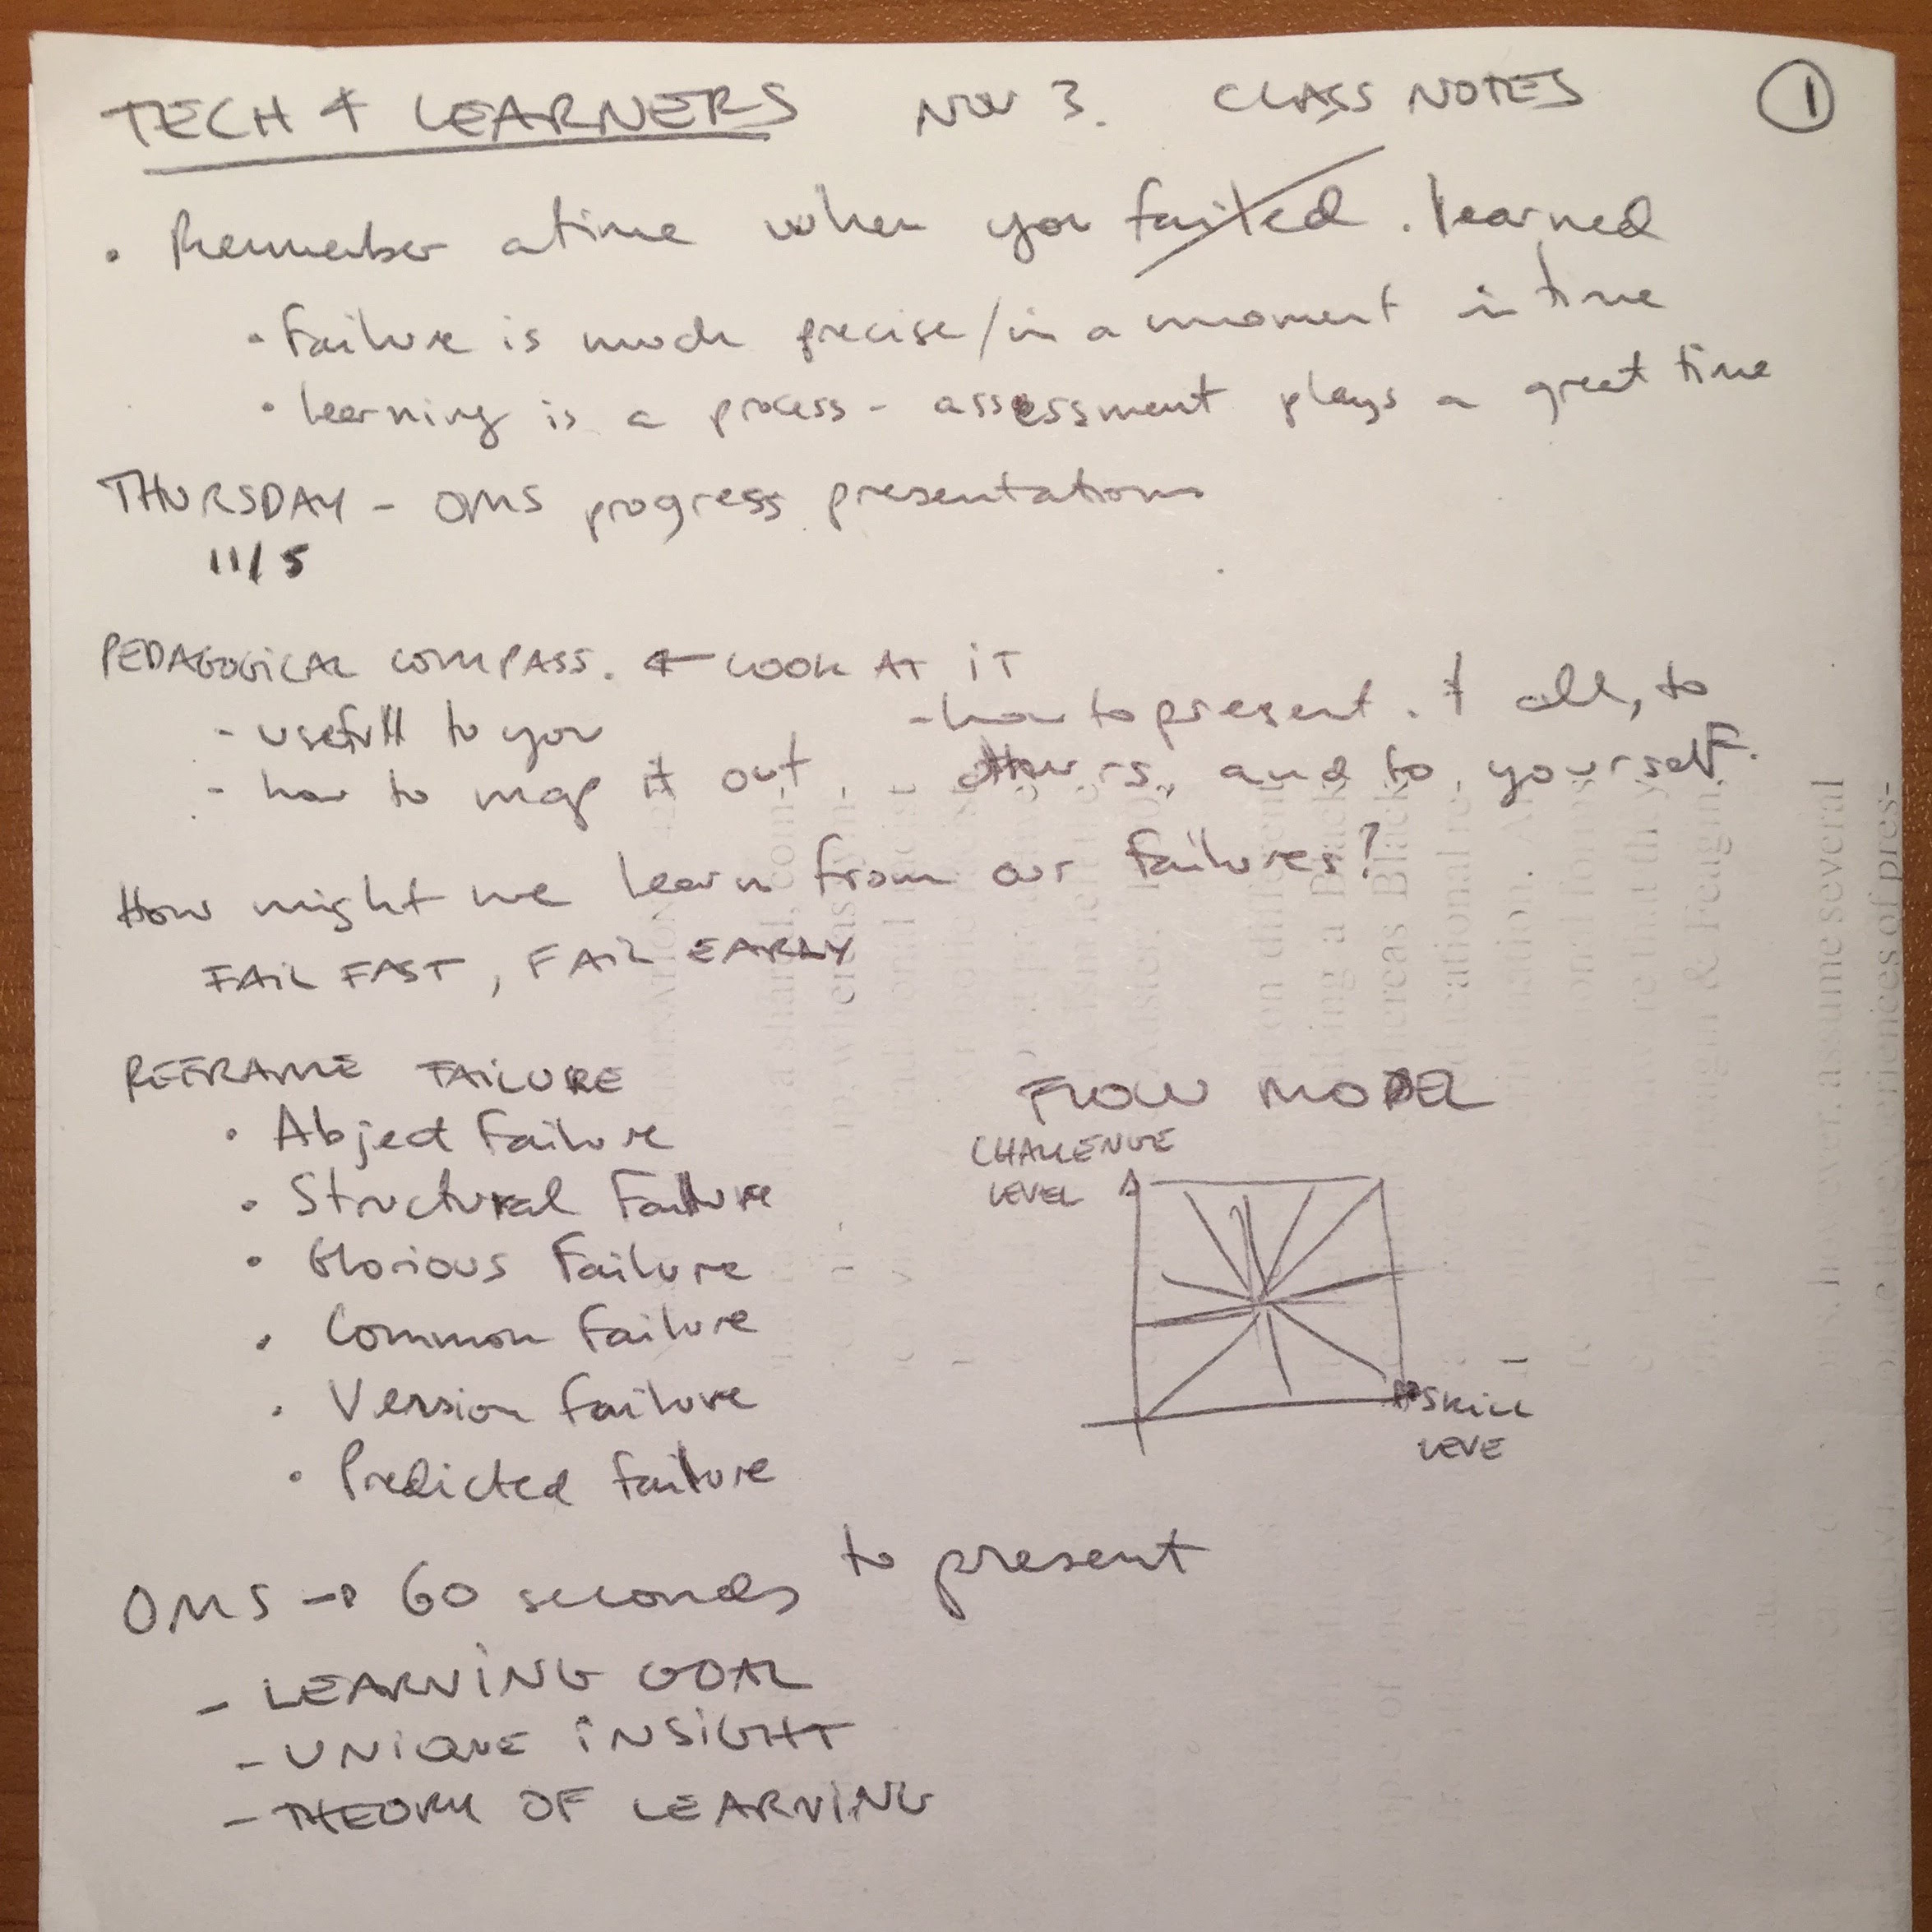 TECH & LEARNERS NOV 3. CLASS NOTES 1
• Remember a time when you failed. learned
• Failure is much precise/in a moment in time
• learning is a process - assessment plays a great time
THURSDAY - OMS progress presentations
11/5
PEDAGOGICAL COMPASS. ← LOOK AT iT
- usefull to you
- how to map it out
- how to present. it all, to
others, and to yourself.
How might we learn from our failures?
FAiL FAST, FAiL EARLY
REFRAME FAiLURE
• Abject Failure
• Structural Failure
• Glorious Failure
• Common Failure
• Version Failure
• Predicted Failure
FLOW MODEL
CHALLENGE
LEVEL
SKiLL
LEVE
OMS → 60 seconds to present
- LEARNiNG GOAL
- UNiQUE iNSiGHT
- THEORY OF LEARNiNG
assume several
riences of pres-